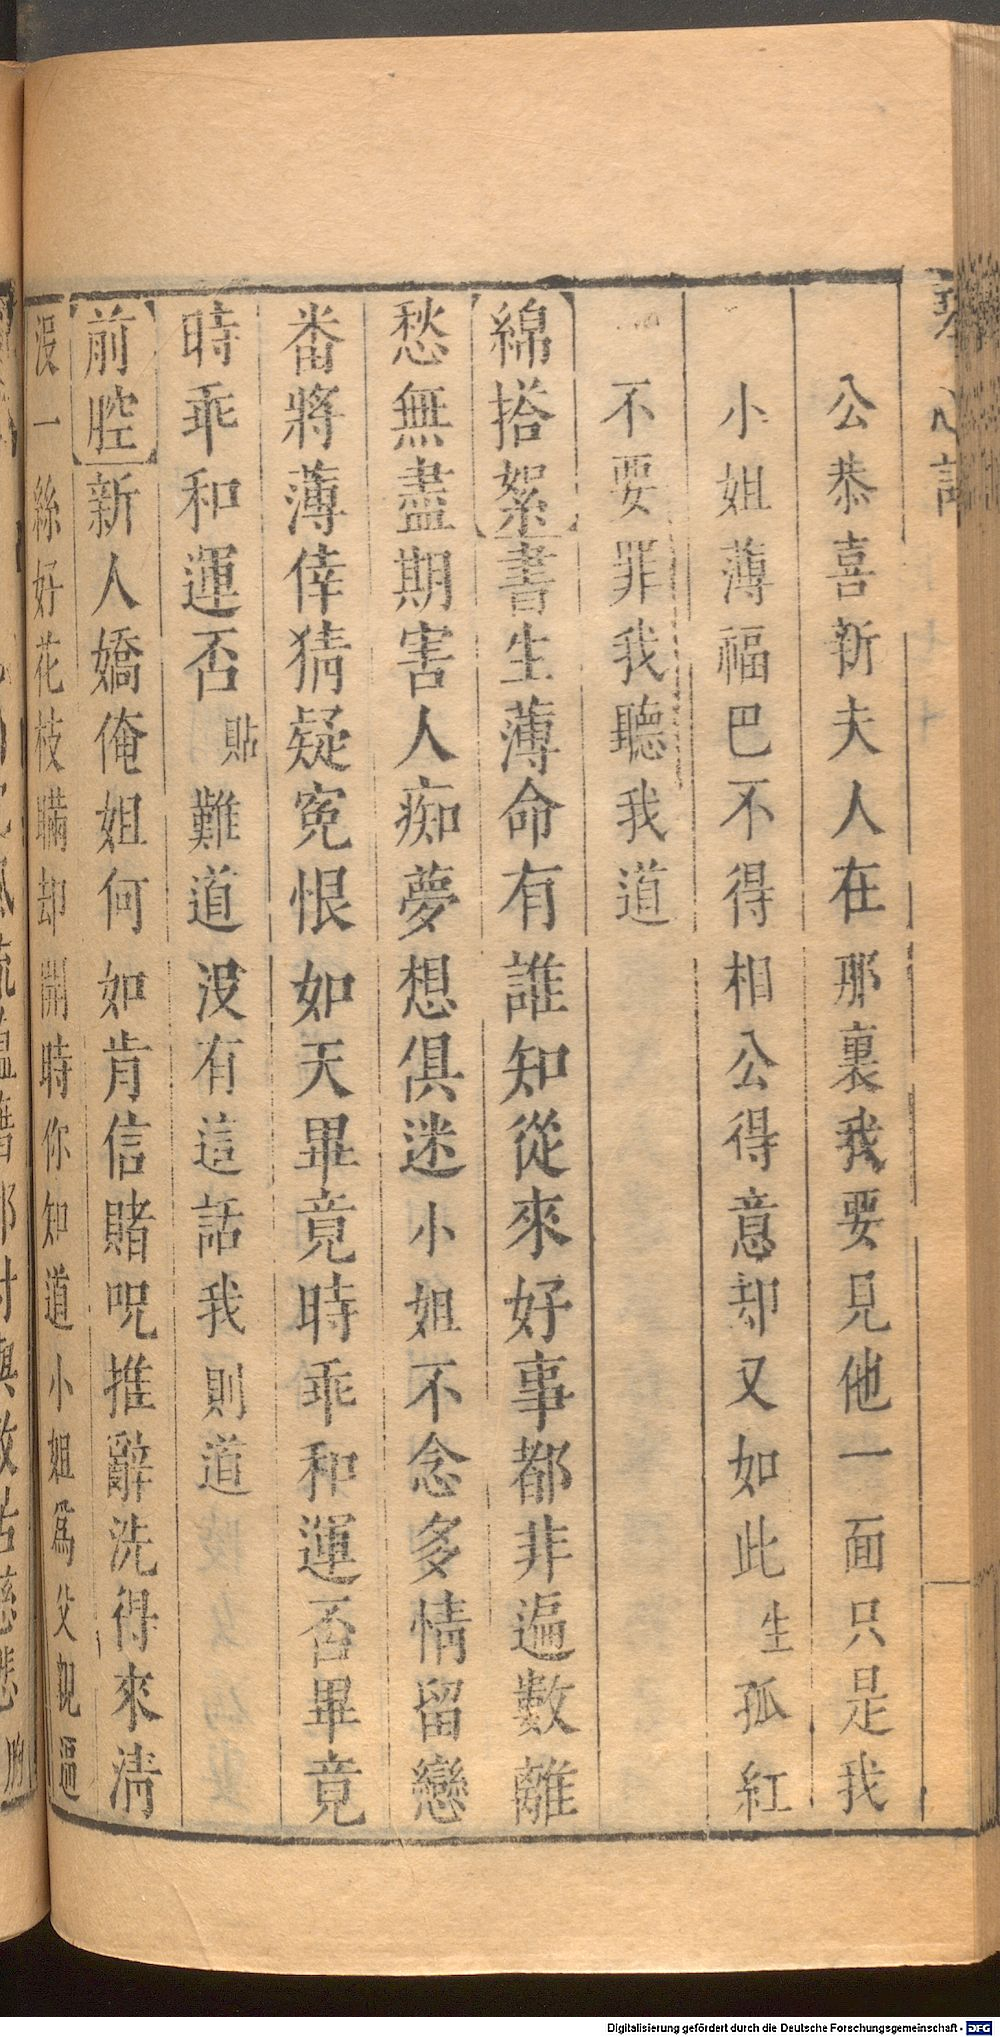 公恭喜新夫人在那裏我要見他一面只是我
小姐薄福巴不得相公得意却又如此生孤紅
不要罪我聽我道
綿搭絮書生薄命有誰知從來好事都非遍數離
愁無盡期害人痴夢想俱迷小姐不念多情留戀
番將薄倖猜疑寃恨如天畢竟時乖和運否畢竟
時乖和運否貼難道没有這話我則道
前腔新人嬌俺姐何如肯信賭呪推辭洗得來清
没一絲好花枝瞞却開時你知道小姐爲父親逼
Digitalisierung gefördert durch die Deutsche Forschungsgemeinschaft - DFG